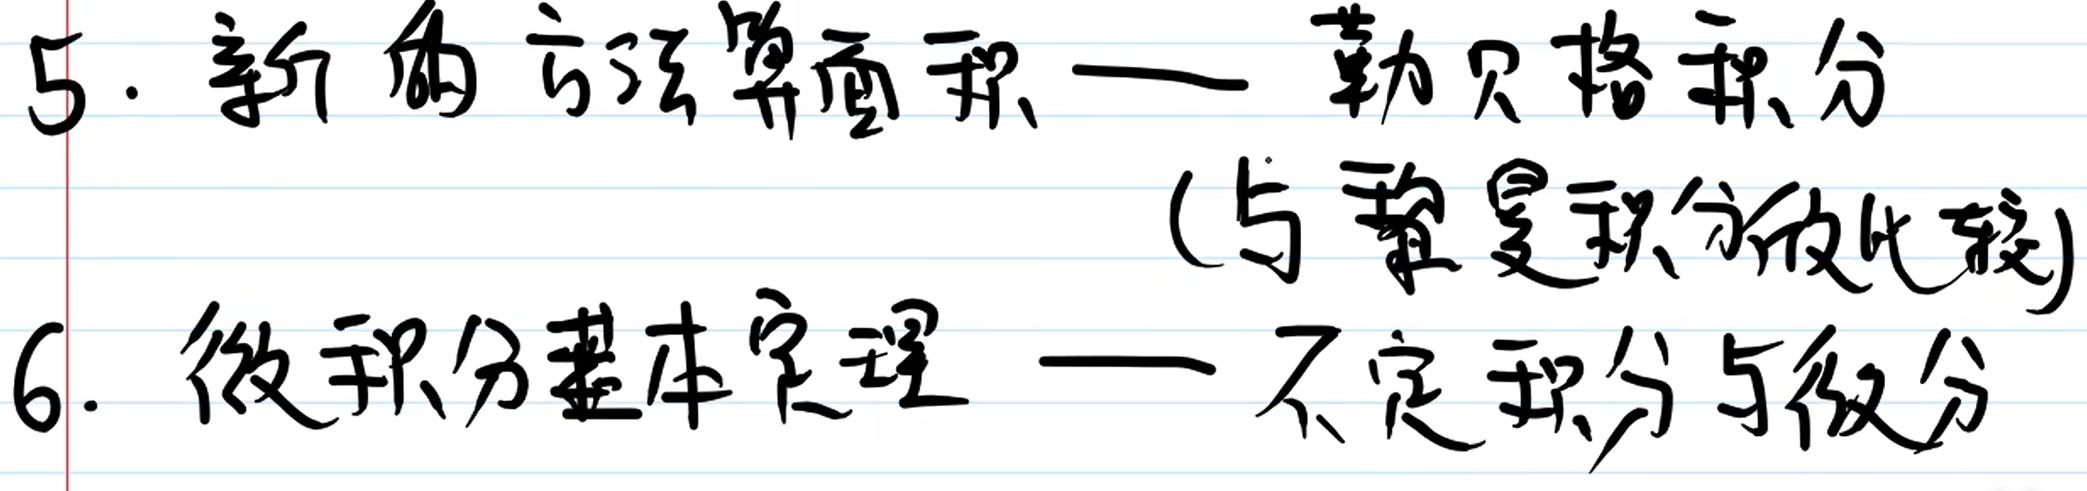 5. 新的方法算面积 —— 勒贝格积分
(与黎曼积分做比较)
6. 微积分基本定理 —— 不定积分与微分